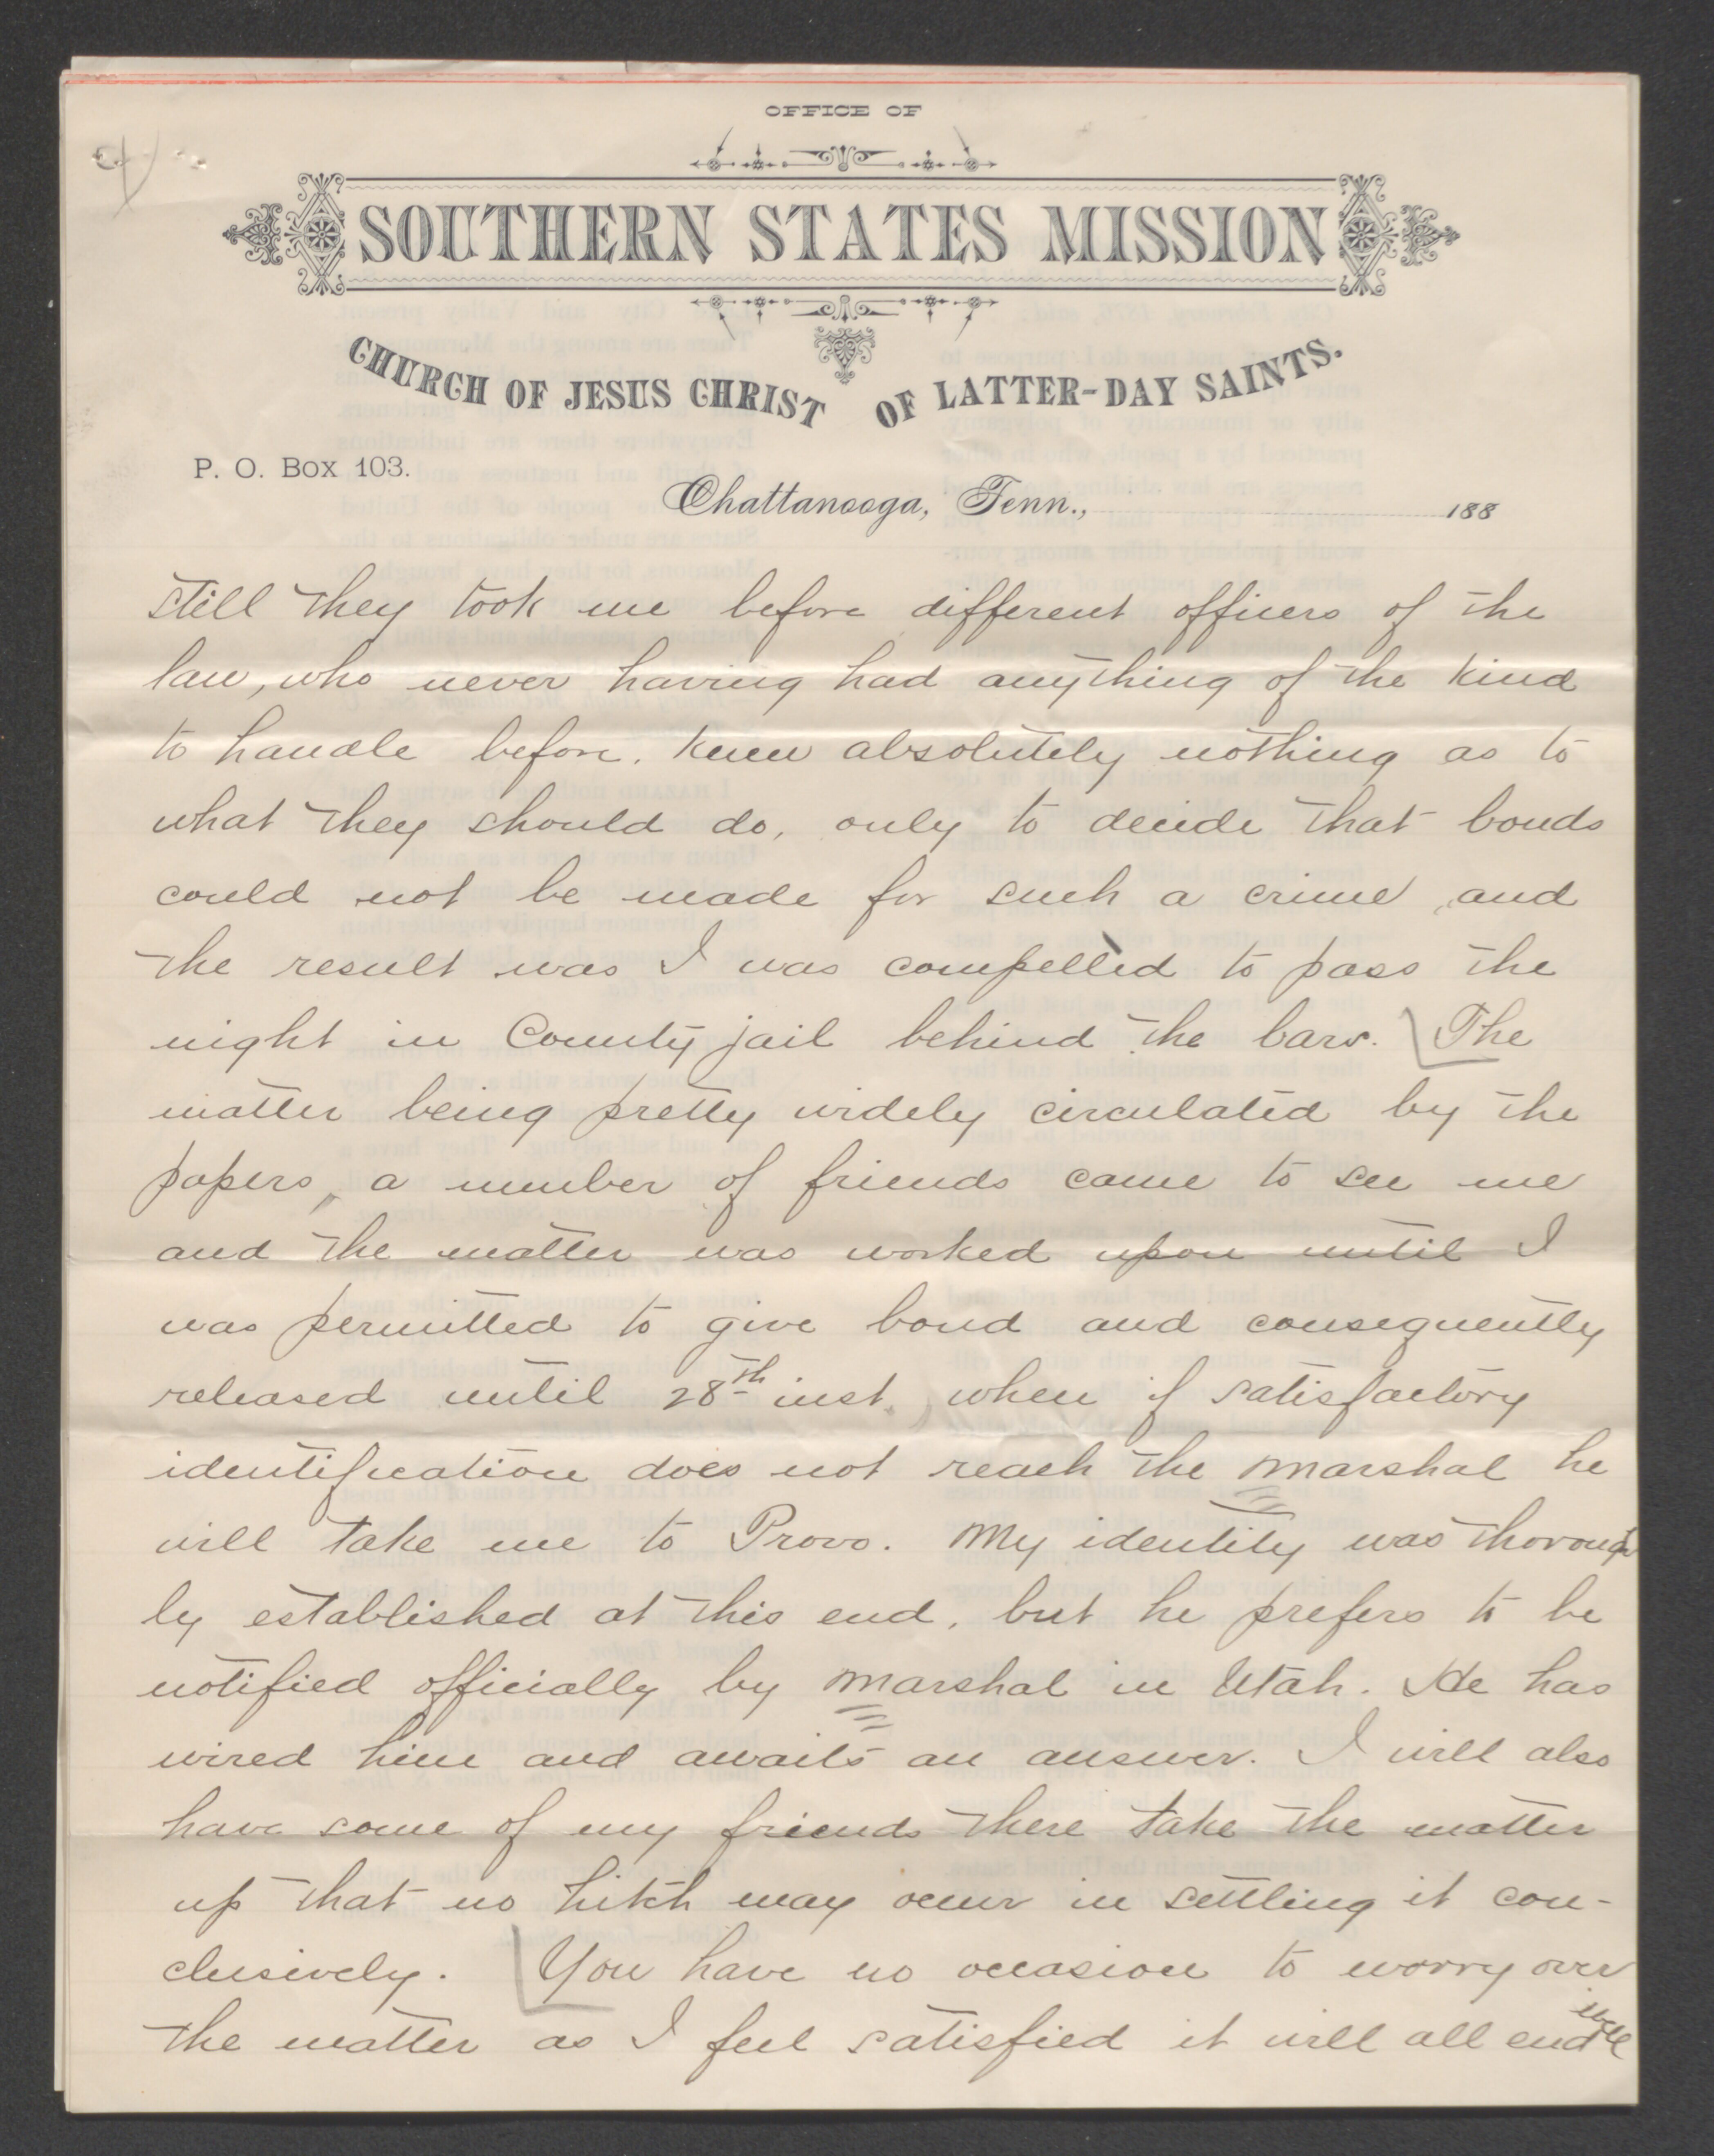 OFFICE OF
SOUTHERN STATES MISSION
CHURCH OF JESUS CHRIST OF LATTER-DAY SAINTS.
P. O. Box 103.
Chattanooga, Tenn., 188
still they took me before different officers of the
law, who never having had anything of the kind
to handle before, knew absolutely nothing as to
what they should do, only to decide that bonds
could not be made for such a crime, and
the result was I was compelled to pass the
night in County jail behind the bars. The
matter being pretty widely circulated by the
papers, a number of friends came to see me
and the matter was worked upon until I
was permitted to give bond and consequently
released until 28th inst. when if satisfactory
identification does not reach the marshal he
will take me to Provo. My identity was thorough
ly established at this end, but he prefers to be
notified officially by marshal in Utah. He has
wired him and awaits an answer. I will also
have some of my friends there take the matter
up that no hitch may occur in settling it con-
clusively. You have no occasion to worry over
the matter as I feel satisfied it will all end well